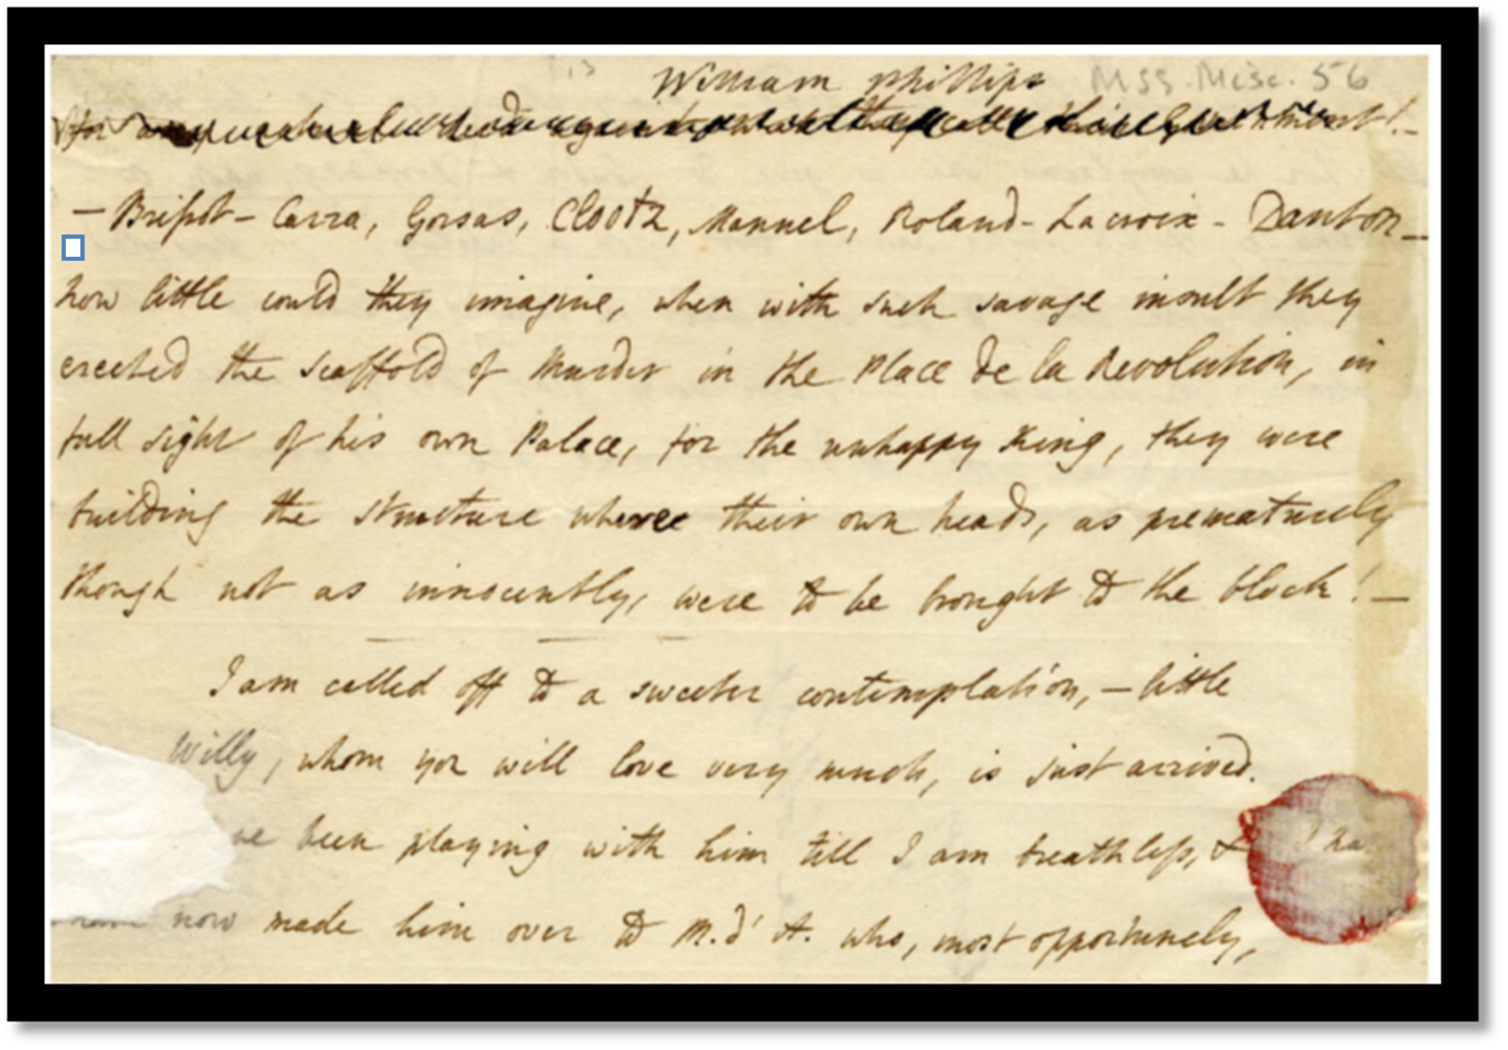 William Phillips MSS. Misc. 56
for
– Brissot – Carra, Gorsas, Clootz, Manuel, Roland – Lacroix – Danton –
how little could they imagine, when with such savage insult they
erected the scaffold of Murder in the Place de la Revolution, in
full sight of his own Palace, for the unhappy King, they were
building the structure where their own heads, as prematurely
though not as innocently, were to be brought to the block! –
I am called off to a sweeter contemplation, – little
Willy, whom you will love very much, is just arrived.
ve been playing with him till I am breathless, & I ha
now made him over to M. d'A. who, most opportunely,